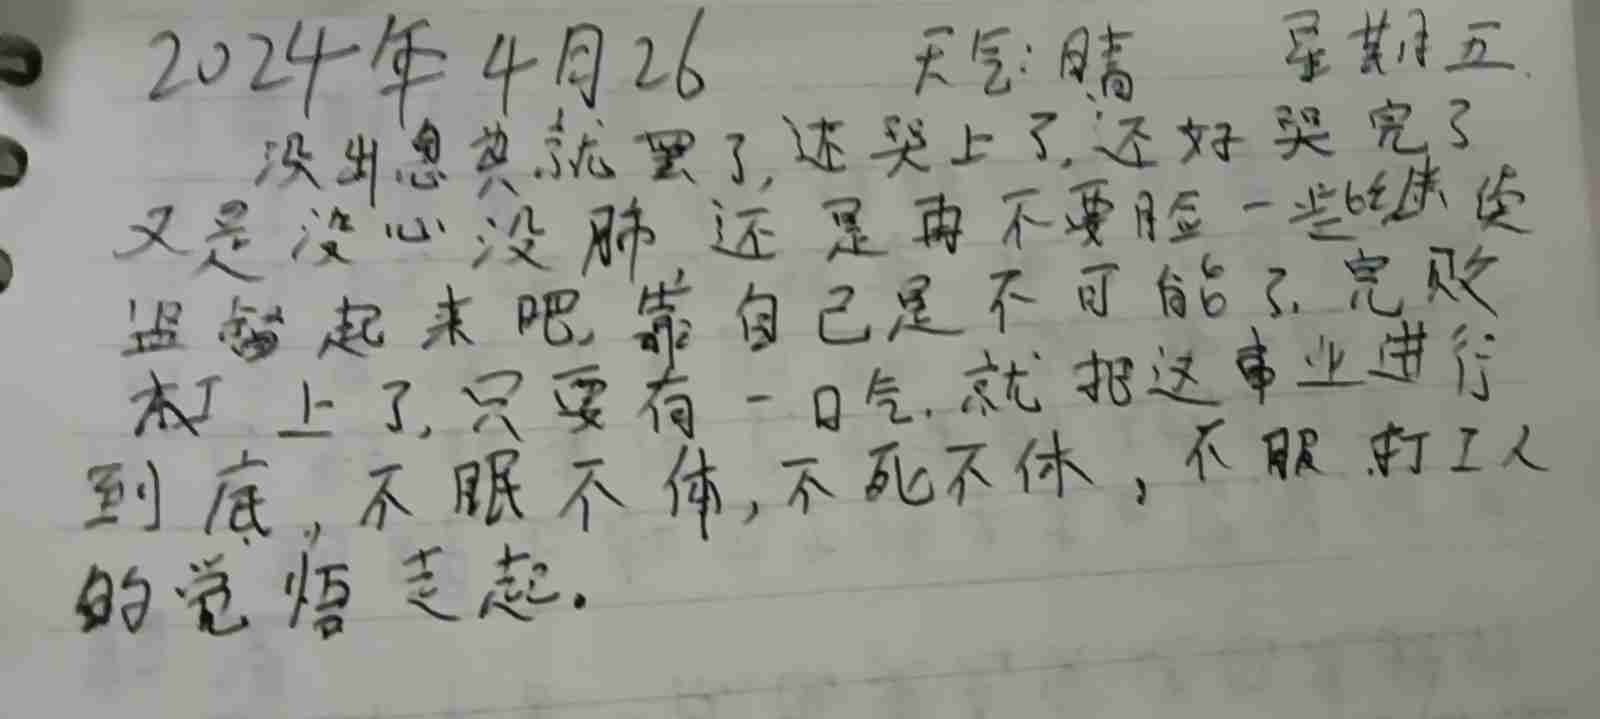 2024年4月26 天气:晴 星期五.
没出息就罢了,还哭上了,还好哭完了
又是没心没肺还是再不要脸一些继续
监督起来吧,靠自己是不可能了.完败
杠上了,只要有一口气.就把这事业进行
到底,不眠不休,不死不休,不服打工人
的觉悟走起.